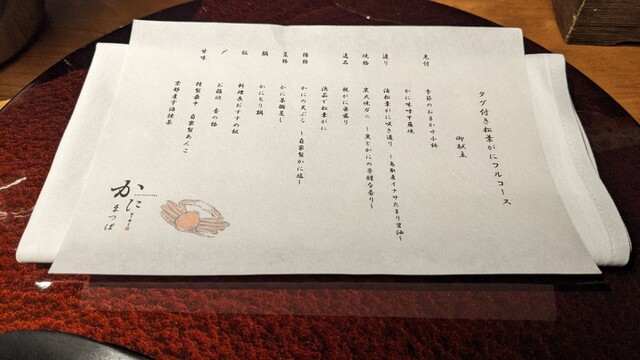 タグ付き松葉がにフルコース
御献立
先付 季節のおまかせ小鉢
かに味噌甲羅焼
造り 活松葉がに咲き造り ～鳥取産イナサたまり醤油～
焼物 炭火焼ガニ ～炭とかにの芳醇な香り～
道品 親がに甲盛り
浜茹で松葉がに
揚物 かにの天ぷら ～自家製かに塩～
蒸物 かに茶碗蒸し
鍋 かにちり鍋
飯 料理長おすすめ飯
〆 お雑炊 香の物
甘味 特製最中 自家製あんこ
京都産宇治抹茶
かに
まつば